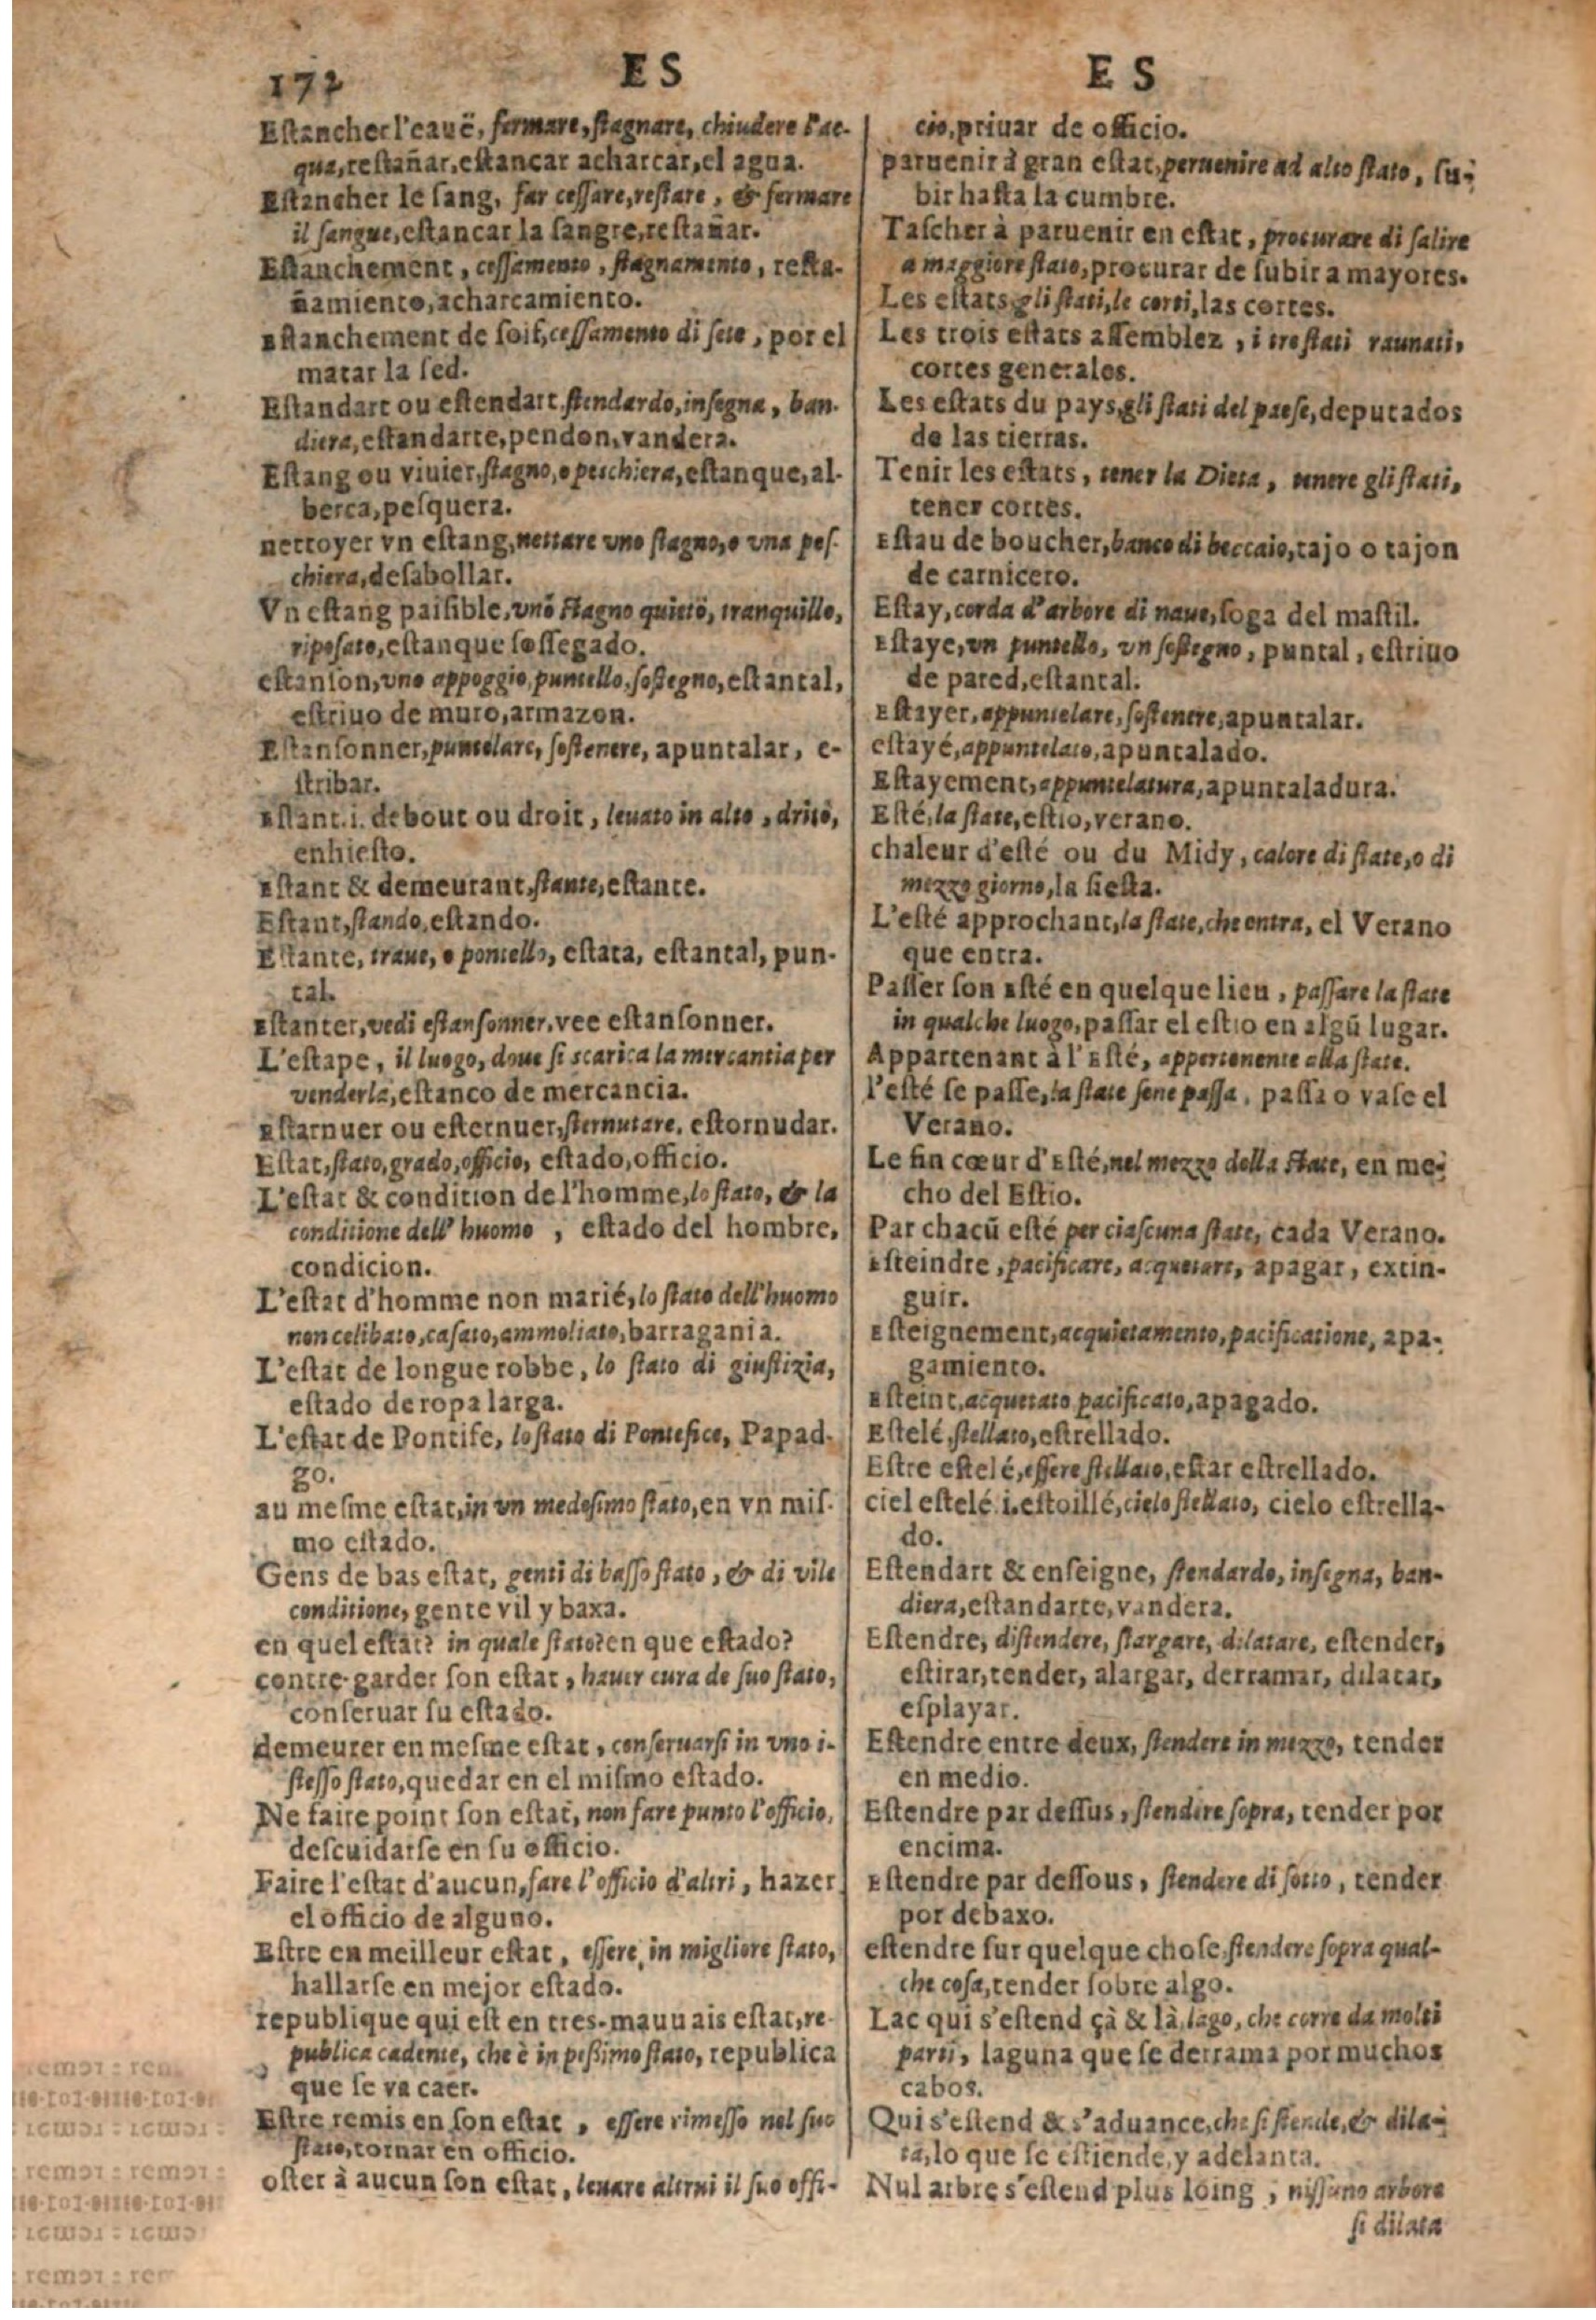 172
ES
ES
Estancher l'eauë, fermare, stagnare, chiudere l'ac-
qua, restañar, estancar acharcar, el agua.
Estancher le sang, far cessare, restare, & fermare
il sangue, estancar la sangre, restañar.
Estanchement, cessamento, stagnamento, resta-
ñamiento, acharcamiento.
Estanchement de soif, cessamento di sete, por el
matar la sed.
Estandart ou estendart, stendardo, insegna, ban-
diera, estandarte, pendon, vandera.
Estang ou viuier, stagno, o peschiera, estanque, al-
berca, pesquera.
nettoyer vn estang, nettare vno stagno, o vna pes-
chiera, desabollar.
Vn estang paisible, vno stagno quieto, tranquillo,
riposato, estanque sossegado.
estanson, vno appoggio, puntello, sostegno, estantal,
estriuo de muro, armazon.
Estansonner, puntelare, sostenere, apuntalar, e-
stribar.
Estant .i. debout ou droit, leuato in alto, drito,
enhiesto.
Estant & demeurant, stante, estante.
Estant, stando, estando.
Estante, traue, o pontello, estata, estantal, pun-
tal.
Estanter, vedi estansonner, vee estansonner.
L'estape, il luogo, doue si scarica la mercantia per
venderla, estanco de mercancia.
Estarnuer ou esternuer, sternutare, estornudar.
Estat, stato, grado, officio, estado, officio.
L'estat & condition de l'homme, lo stato, & la
conditione dell' huomo, estado del hombre,
condicion.
L'estat d'homme non marié, lo stato dell'huomo
non celibato, casato, ammoliato, barragania.
L'estat de longue robbe, lo stato di giustizia,
estado de ropa larga.
L'estat de Pontife, lo stato di Pontefice, Papad-
go.
au mesme estat, in vn medesimo stato, en vn mis-
mo estado.
Gens de bas estat, genti di basso stato, & di vile
conditione, gente vil y baxa.
en quel estat? in quale stato? en que estado?
contre-garder son estat, hauer cura de suo stato,
conseruar su estado.
demeurer en mesme estat, conseruarsi in vno i-
stesso stato, quedar en el mismo estado.
Ne faire point son estat, non fare punto l'officio,
descuidarse en su officio.
Faire l'estat d'aucun, fare l'officio d'altri, hazer
el officio de alguno.
Estre en meilleur estat, essere in migliore stato,
hallarse en mejor estado.
republique qui est en tres-mauuais estat, re-
publica cadente, che è in pessimo stato, republica
que se va caer.
Estre remis en son estat, essere rimesso nel suo
stato, tornar en officio.
oster à aucun son estat, leuare altrui il suo offi-
cio, priuar de officio.
paruenir à gran estat, peruenire ad alto stato, su-
bir hasta la cumbre.
Tascher à paruenir en estat, procurare di salire
a maggiore stato, procurar de subir a mayores.
Les estats, gli stati, le corti, las cortes.
Les trois estats assemblez, i tre stati raunati,
cortes generales.
Les estats du pays, gli stati del paese, deputados
de las tierras.
Tenir les estats, tener la Dieta, tenere gli stati,
tener cortes.
Estau de boucher, banco di beccaio, tajo o tajon
de carnicero.
Estay, corda d'arbore di naue, soga del mastil.
Estaye, vn puntello, vn sostegno, puntal, estriuo
de pared, estantal.
Estayer, appuntelare, sostenere, apuntalar.
estayé, appuntelato, apuntalado.
Estayement, appuntelatura, apuntaladura.
Esté, la state, estio, verano.
chaleur d'esté ou du Midy, calore di state, o di
mezzo giorno, la siesta.
L'esté approchant, la state, che entra, el Verano
que entra.
Passer son Esté en quelque lieu, passare la state
in qualche luogo, passar el estio en algũ lugar.
Appartenant à l'Esté, appertenente alla state.
l'esté se passe, la state sene passa, passa o vase el
Verano.
Le fin cœur d'Esté, nel mezzo della state, en me-
cho del Estio.
Par chacũ esté per ciascuna state, cada Verano.
Esteindre, pacificare, acquetare, apagar, extin-
guir.
Esteignement, acquietamento, pacificatione, apa-
gamiento.
Esteint, acquetato pacificato, apagado.
Estelé, stellato, estrellado.
Estre estelé, essere stellato, estar estrellado.
ciel estelé .i. estoillé, cielo stellato, cielo estrella-
do.
Estendart & enseigne, stendardo, insegna, ban-
diera, estandarte, vandera.
Estendre, distendere, slargare, dilatare, estender,
estirar, tender, alargar, derramar, dilatar,
esplayar.
Estendre entre deux, stendere in mezzo, tender
en medio.
Estendre par dessus, stendere sopra, tender por
encima.
Estendre par dessous, stendere di sotto, tender
por debaxo.
estendre sur quelque chose, stendere sopra qual-
che cosa, tender sobre algo.
Lac qui s'estend çà & là, lago, che corre da molti
parti, laguna que se derrama por muchos
cabos.
Qui s'estend & s'aduance, che si stende, & dila-
ta, lo que se estiende, y adelanta.
Nul arbre s'estend plus loing, nissuno arbore
si dilata